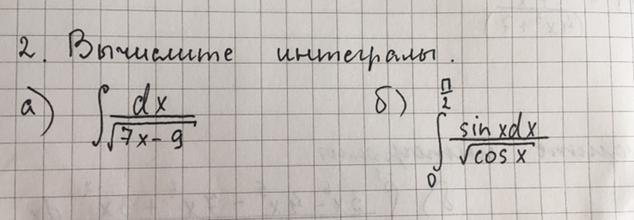 2. Вычислите интегралы.
а) ∫ dx / √(7x - 9)
б) ∫₀^(π/2) sin x dx / √(cos x)